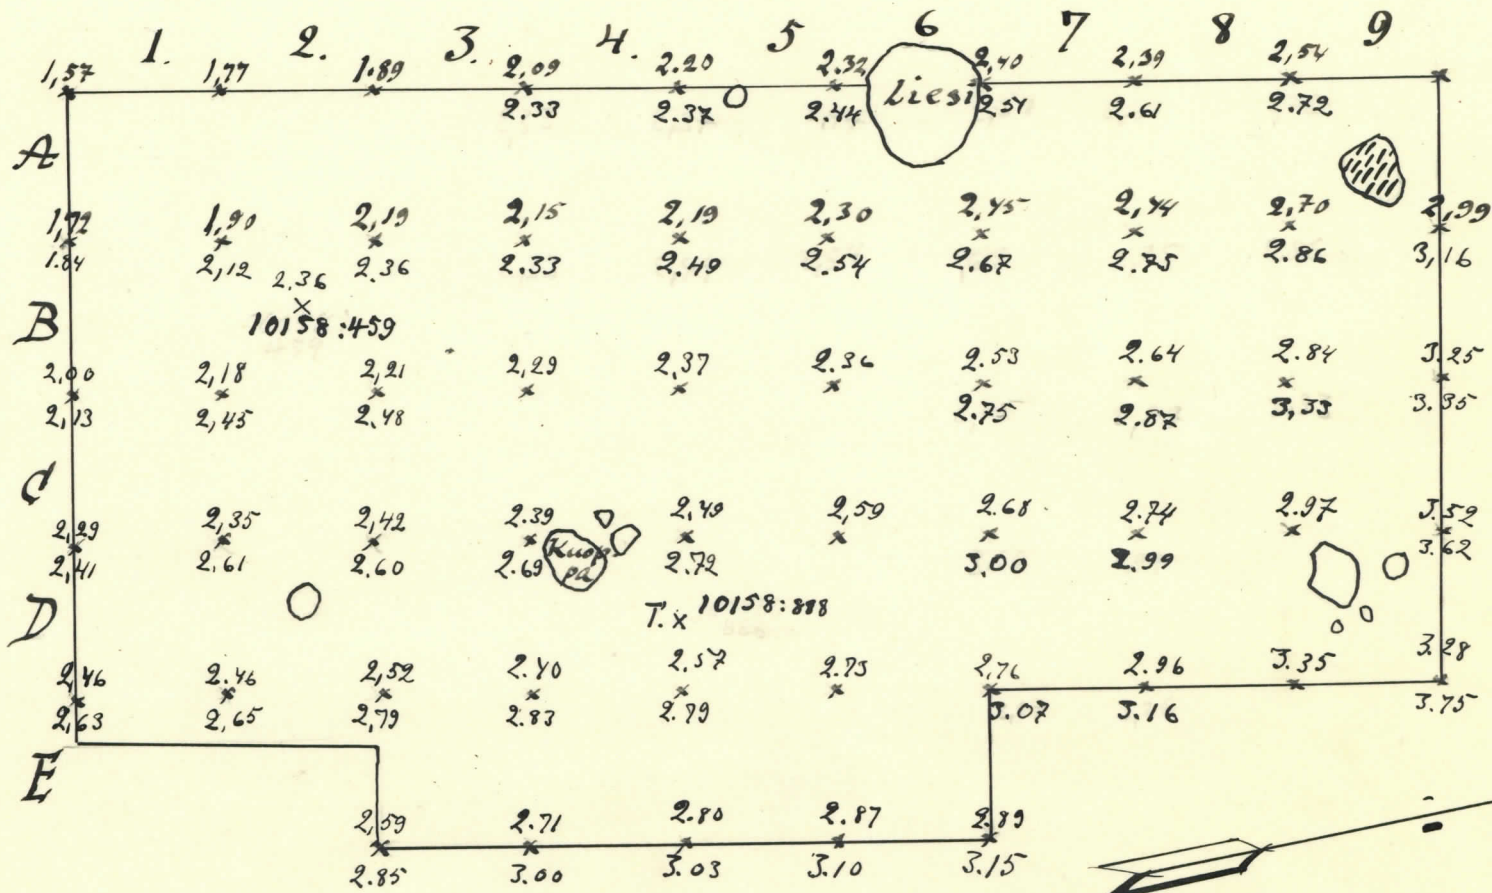 1. 2. 3. 4. 5 6 7 8 9
1,57 1,77 1.89 2,09 2.20 2.32 2,40 2,39 2,54
Liesi
2.33 2.37 2.44 2.57 2.61 2.72
A
1,72 1,90 2,19 2,15 2,19 2,30 2,45 2,44 2,70 2,99
1.84 2,12 2.36 2.33 2.49 2.54 2.67 2.75 2.86 3,16
2.36
B
10158:459
2,00 2,18 2,21 2,29 2,37 2.36 2.53 2.64 2.84 3.25
2,13 2,45 2,48 2.75 2.87 3,33 3.35
C
2,29 2,35 2,42 2.39 2,49 2,59 2.68 2.74 2.97 3.52
Kuop
pa
2,41 2.61 2.60 2.69 2.72 3,00 2.99 3.62
D
T. 10158:888
2,46 2.46 2,52 2.40 2,57 2.73 2,76 2.96 3.35 3.28
2,63 2,65 2,79 2.83 2.79 3.07 3.16 3.75
E
2,59 2.71 2.80 2.87 2.89
2.85 3.00 3.03 3.10 3.15